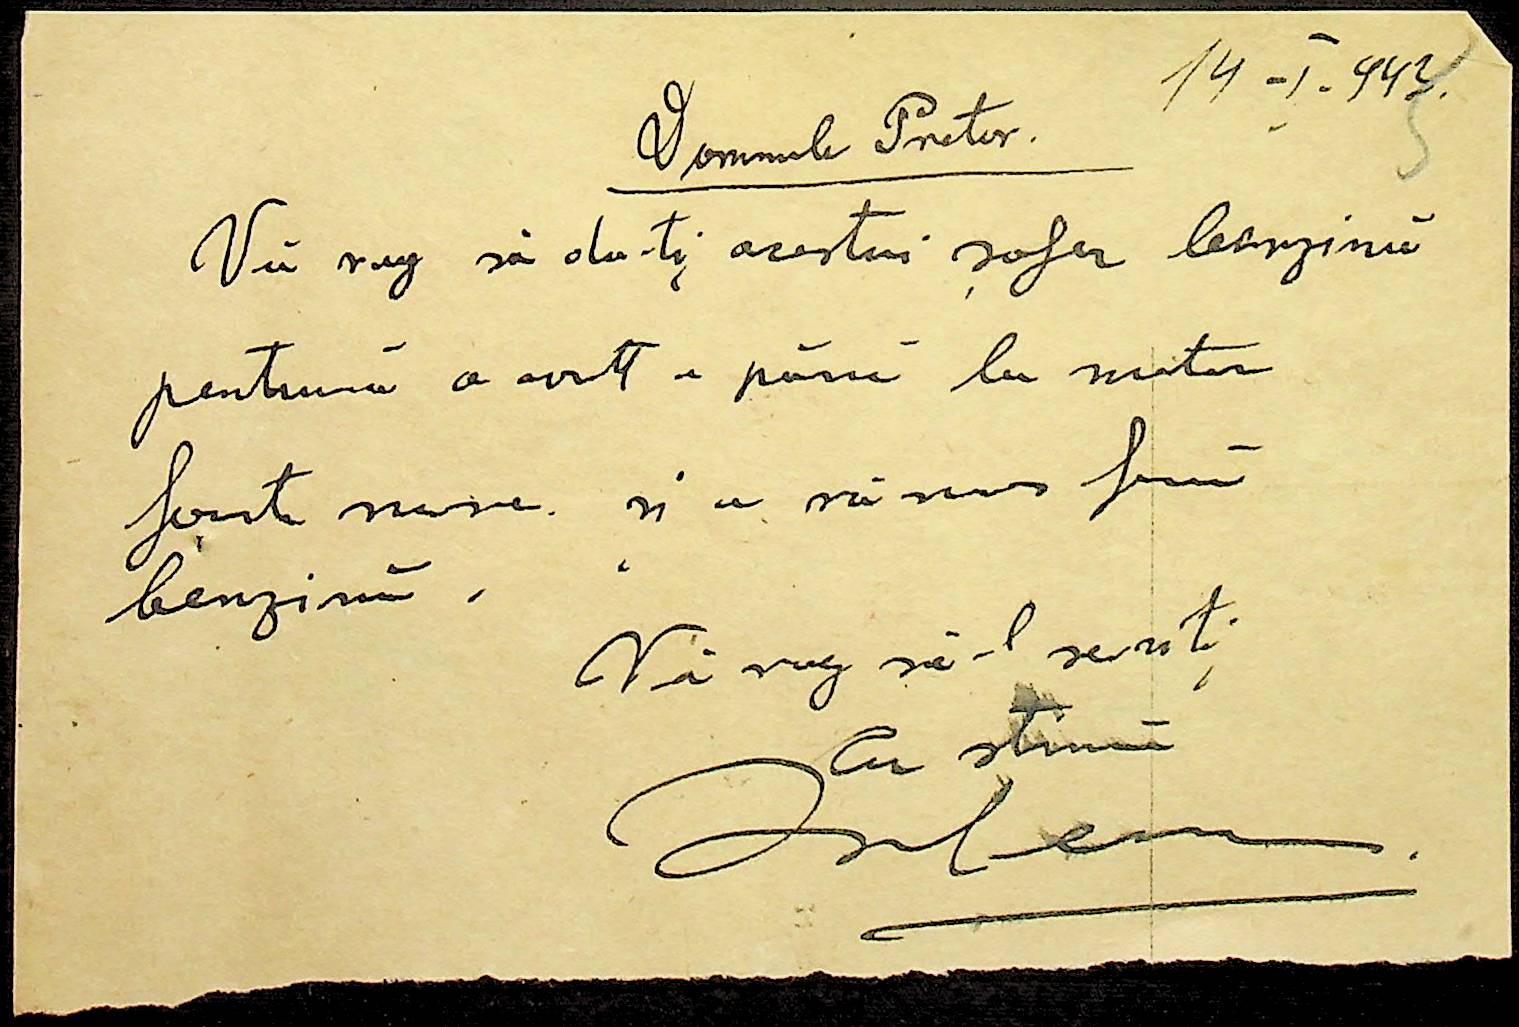 14-I-943.
Domnule Pretor.
Vă rog să da-ți acestui șofer benzină
pentrucă a avut a până la
foarte mare. și a rămas fără
benzină.
Vă rog să-l serviți
Cu stimă